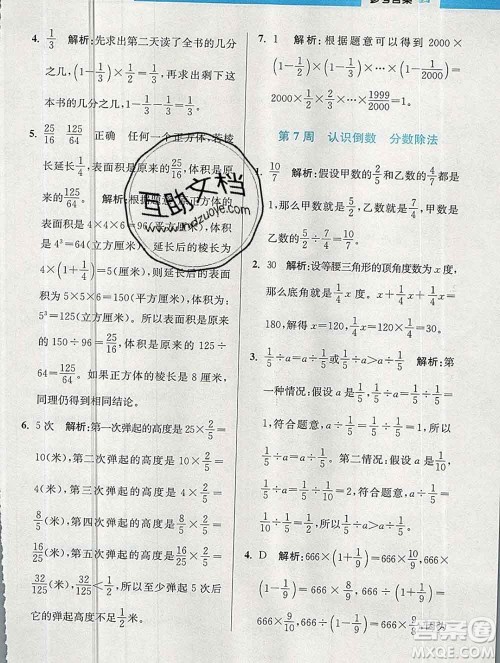 参考答案
4. 1/3 解析:先求出第二天读了全书的几分
之几,(1-1/3)×1/2=1/3,再求出还剩下全
本书的几分之几,1-1/3-1/3=1/3。
5. 25/16 125/64 正确 任何一个正方体,若棱
长延长1/4,表面积是原来的25/16,体积是原来
的125/64。 解析:
正方体的
表面积是4×4×6= (平方厘米),体积是
4³=64(立方厘米)。延长后的棱长为
4×(1+1/4)=5(厘米),延长后的表面积
为5×5×6=150(平方厘米),体积为
5³=125(立方厘米)。表面积是原来的
150÷96=25/16,体积是原来的125÷64=
125/64。如果正方体的棱长为其他长度,
同理仍得到相同结论。
6. 5次 解析:第一次弹起的高度是25×2/5=
10(米),第二次弹起的高度是10×2/5=
4(米),第三次弹起的高度是4×2/5=
8/5(米),第四次弹起的高度是8/5×2/5=
16/25(米),第五次弹起的高度是16/25×2/5=
32/125(米),32/125<1/2,所以第5次弹起后
它的弹起高度不足1/2米。
7. 1 解析:根据题意可以得到2000×
(1-1/2)×(1-1/3)×…×(1-1/2000)=
2000×1/2×2/3×…×1999/2000=1。
第7周 认识倒数 分数除法
1. 10/7 解析:假设甲数的1/5和乙数的2/7
都是1,那么甲数是5,乙数是7/2,甲数是
乙数的5÷7/2=10/7。
2. 30 解析:设等腰三角形的顶角度数为x度,
那么底角就是1/4x度。x+1/4x+1/4x=
180,x=120。1/4x=30。
3. 1/5÷a=a÷1/5或1/5÷a>a÷1/5 解析:第
一种情况:假设a是1/5,1/5÷a=1/5÷1/5=
1,符合题意,a÷1/5=1/5÷1/5=1,所以
1/5÷a=a÷1/5。第二种情况:假设a是1/6,
1/5÷a=1/5÷1/6=6/5>1,符合题意,a÷1/5=
1/6÷1/5=5/6,所以1/5÷a>a÷1/5。
4. D 解析:666×(1+1/9)=666×10/9,
666×(1-1/9)=666×8/9,666÷(1+1/9)=
666×9/10,666÷(1-1/9)=666×9/8,因为
互助文档
www.hdzuoye.com
答案圈
MXQE.COM